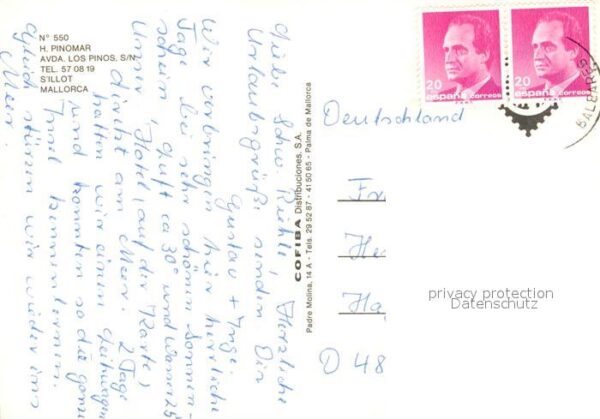 N° 550
H. PINOMAR
AVDA. LOS PINOS, S/N
TEL. 57 08 19
S'ILLOT
MALLORCA
Liebe Schw. Herzliche
Urlaubsgrüße senden Dir
Gustav + Inge.
Wir verbringen hier herrliche
Tage bei sehr schönem Sonnen-
schein, Luft ca 30° und Wasser 25
Unser Hotel, auf der Karte,
direkt am Meer. 2 Tage
hatten wir einen
und konnten so die ganze
Insel kennenlernen.
Gleich stürzen wir wieder ins
Meer.
COFIBA Distribuciones, S.A.
Padre Molina, 14 A - Tels. 29 52 87 - 41 50 65 - Palma de Mallorca
20
españa correos
20
españa correos
BALEARES
Deutschland
Fr
He
Ha
D 48
privacy protection
Datenschutz